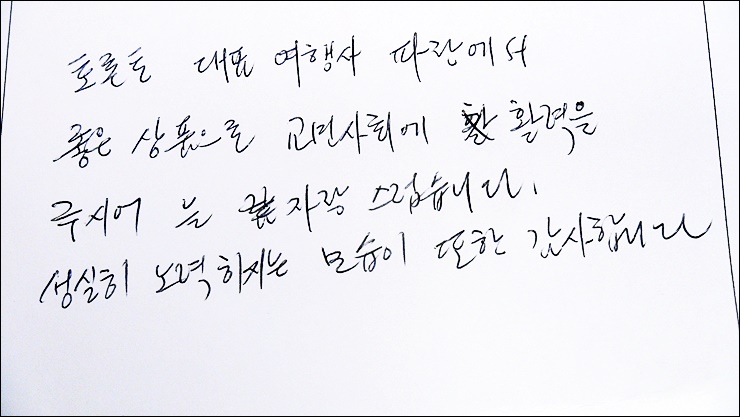 토론토 대표 여행사 파란에서
좋은 상품으로 교민사회에 활력을
주시어 늘 자랑 스럽습니다.
성실히 노력하시는 모습이 또한 감사합니다